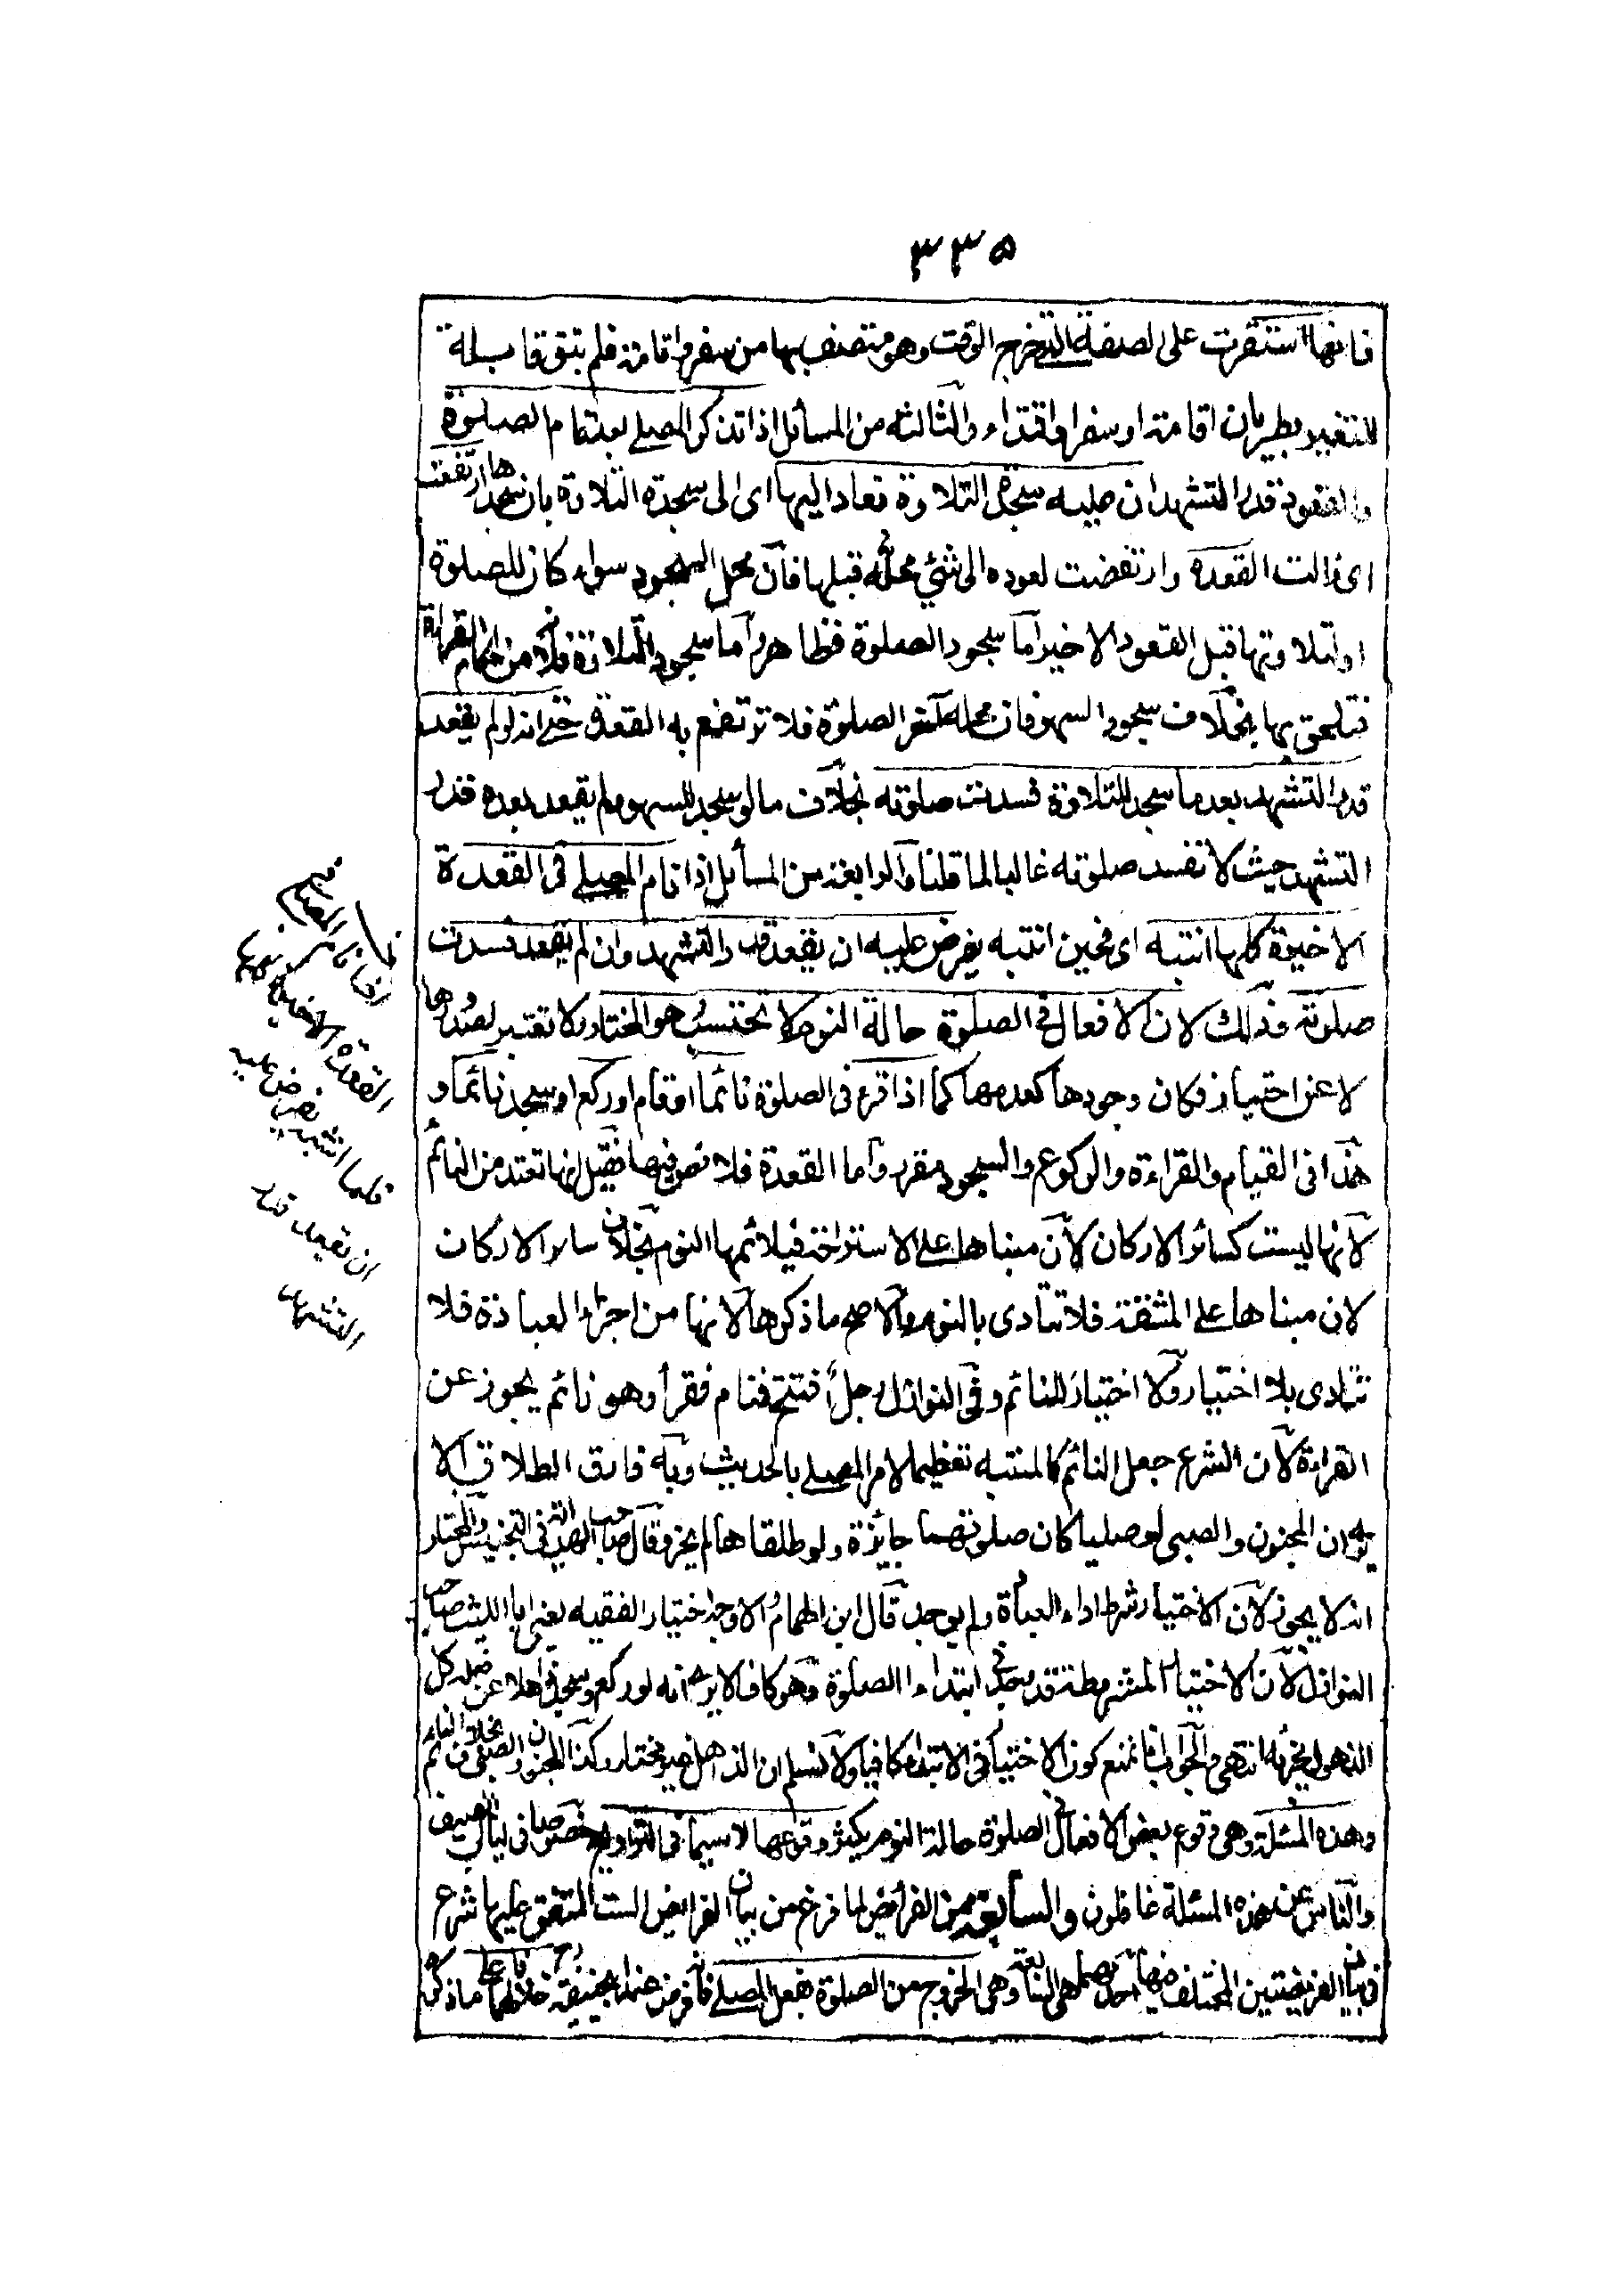 ٣٣٥
فانها استقرت على الصفة التى خرج الوقت وهو متصف بها من سفر واقامة فلم تبق قابلة
للتغير بطريان اقامة او سفر او اقتداء والثالثة من المسائل اذا تذكر المصلى بعد تمام الصلوة
والقعود قدر التشهد ان عليه سجدة التلاوة فعاد اليها اى الى سجدة التلاوة بان سجدها ارتفعت
اى زالت القعدة وارتفضت لعوده الى شئ محله قبلها فان محل السجود سواء كان للصلوة
او لتلاوتها قبل القعود الاخير اما سجود الصلوة فظاهر واما سجود التلاوة فلانه من اتمام القراءة
فتلحق بها بخلاف سجود السهو فان محله آخر الصلوة فلا ترتفع به القعدة حتى انه لو لم يقعد
قدر التشهد بعد ما سجد للتلاوة فسدت صلوته بخلاف ما لو سجد للسهو ولم يقعد بعده قدر
التشهد حيث لا تفسد صلوته غالبا لما قلنا والرابعة من المسائل اذا نام المصلى فى القعدة
الاخيرة كلها انتبه اى فحين انتبه يفرض عليه ان يقعد قدر التشهد وان لم يقعد فسدت
صلوته وذلك لان الافعال فى الصلوة حالة النوم لا تحتسب هو المختار ولا تعتبر لصدورها
لا عن اختيار فكان وجودها كعدمها كما اذا قرء فى الصلوة نائما او قام او ركع او سجد نائما و
هذا فى القيام والقراءة والركوع والسجود مقرر واما القعدة فلا نص فيها فقيل انها تعتد من النائم
لانها ليست كسائر الاركان لان مبناها على الاستراحة فيلائمها النوم بخلاف سائر الاركان
لان مبناها على المشقة فلا تتادى بالنوم والاصح ما ذكرها لانها من اجزاء العبادة فلا
تتادى بلا اختيار ولا اختيار للنائم وفى النوازل رجل افتتح فنام فقرأ وهو نائم يجوز عن
القراءة لان الشرع جعل النائم كالمنتبه تعظيما لامر المصلى بالحديث وبه فارق الطلاق الا
يرى ان المجنون والصبى لو صليا كان صلوتهما جائزة ولو طلقا هما لم يجز وقال صاحب الهداية فى التجنيس والمختار
انه لا يجوز لان الاختيار شرط اداء العبادة ولم يوجد قال ابن الهمام الاوجه اختيار الفقيه يعنى ابا الليث صاحب
النوازل لان الاختيار المشروط قد وجد فى ابتداء الصلوة وهو كاف الا يرى انه لو ركع وسجد ذاهلا عن فعله كل
الذهول يجزيه انتهى والجواب انا نمنع كون الاختيار فى الابتداء كافيا ولا نسلم ان الذاهل غير مختار وكذا المجنون والصبى بخلاف النائم
وهذه المسئلة وهى وقوع بعض الافعال فى الصلوة حالة النوم يكثر وقوعها لا سيما فى التراويح خصوصا فى ليالى الصيف
والناس عن هذه المسئلة غافلون والسابعة من الفرائض لما فرغ من بيان الفرائض الست المتفق عليها شرع
فى بيان الفريضتين المختلف فيهما احديهما هى السابعة وهى الخروج من الصلوة بفعل المصلى فانه فرض عند ابى حنيفة رح خلافا لهما على ما ذكره
اذا نام المصلى فى
القعدة الاخيرة كلها
فلما انتبه يفرض عليه
ان يقعد قدر
التشهد